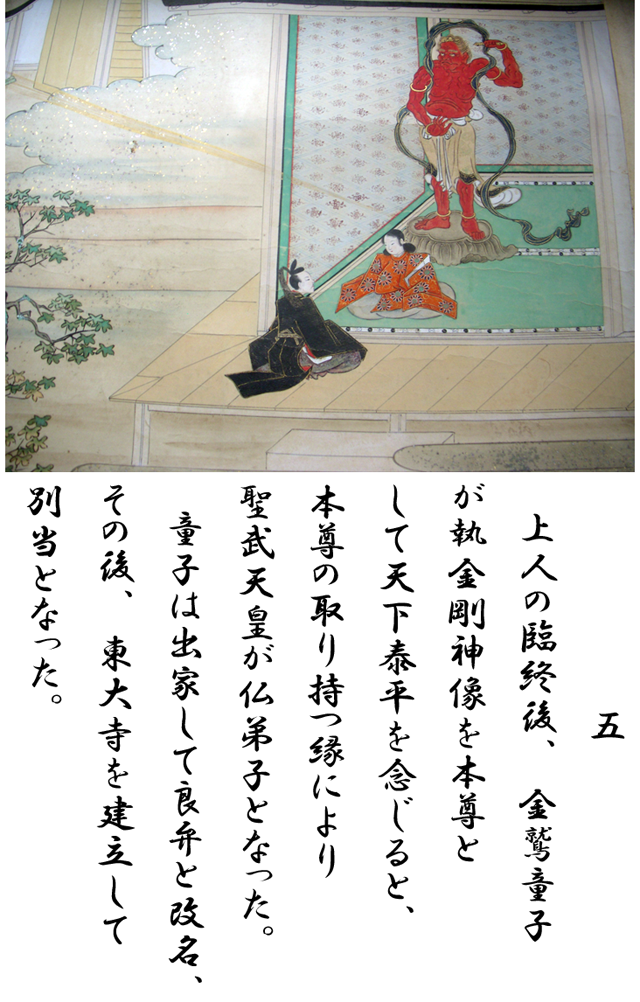 五
上人の臨終後、金鷲童子
が執金剛神像を本尊と
して天下泰平を念じると、
本尊の取り持つ縁により
聖武天皇が仏弟子となった。
童子は出家して良弁と改名、
その後、東大寺を建立して
別当となった。